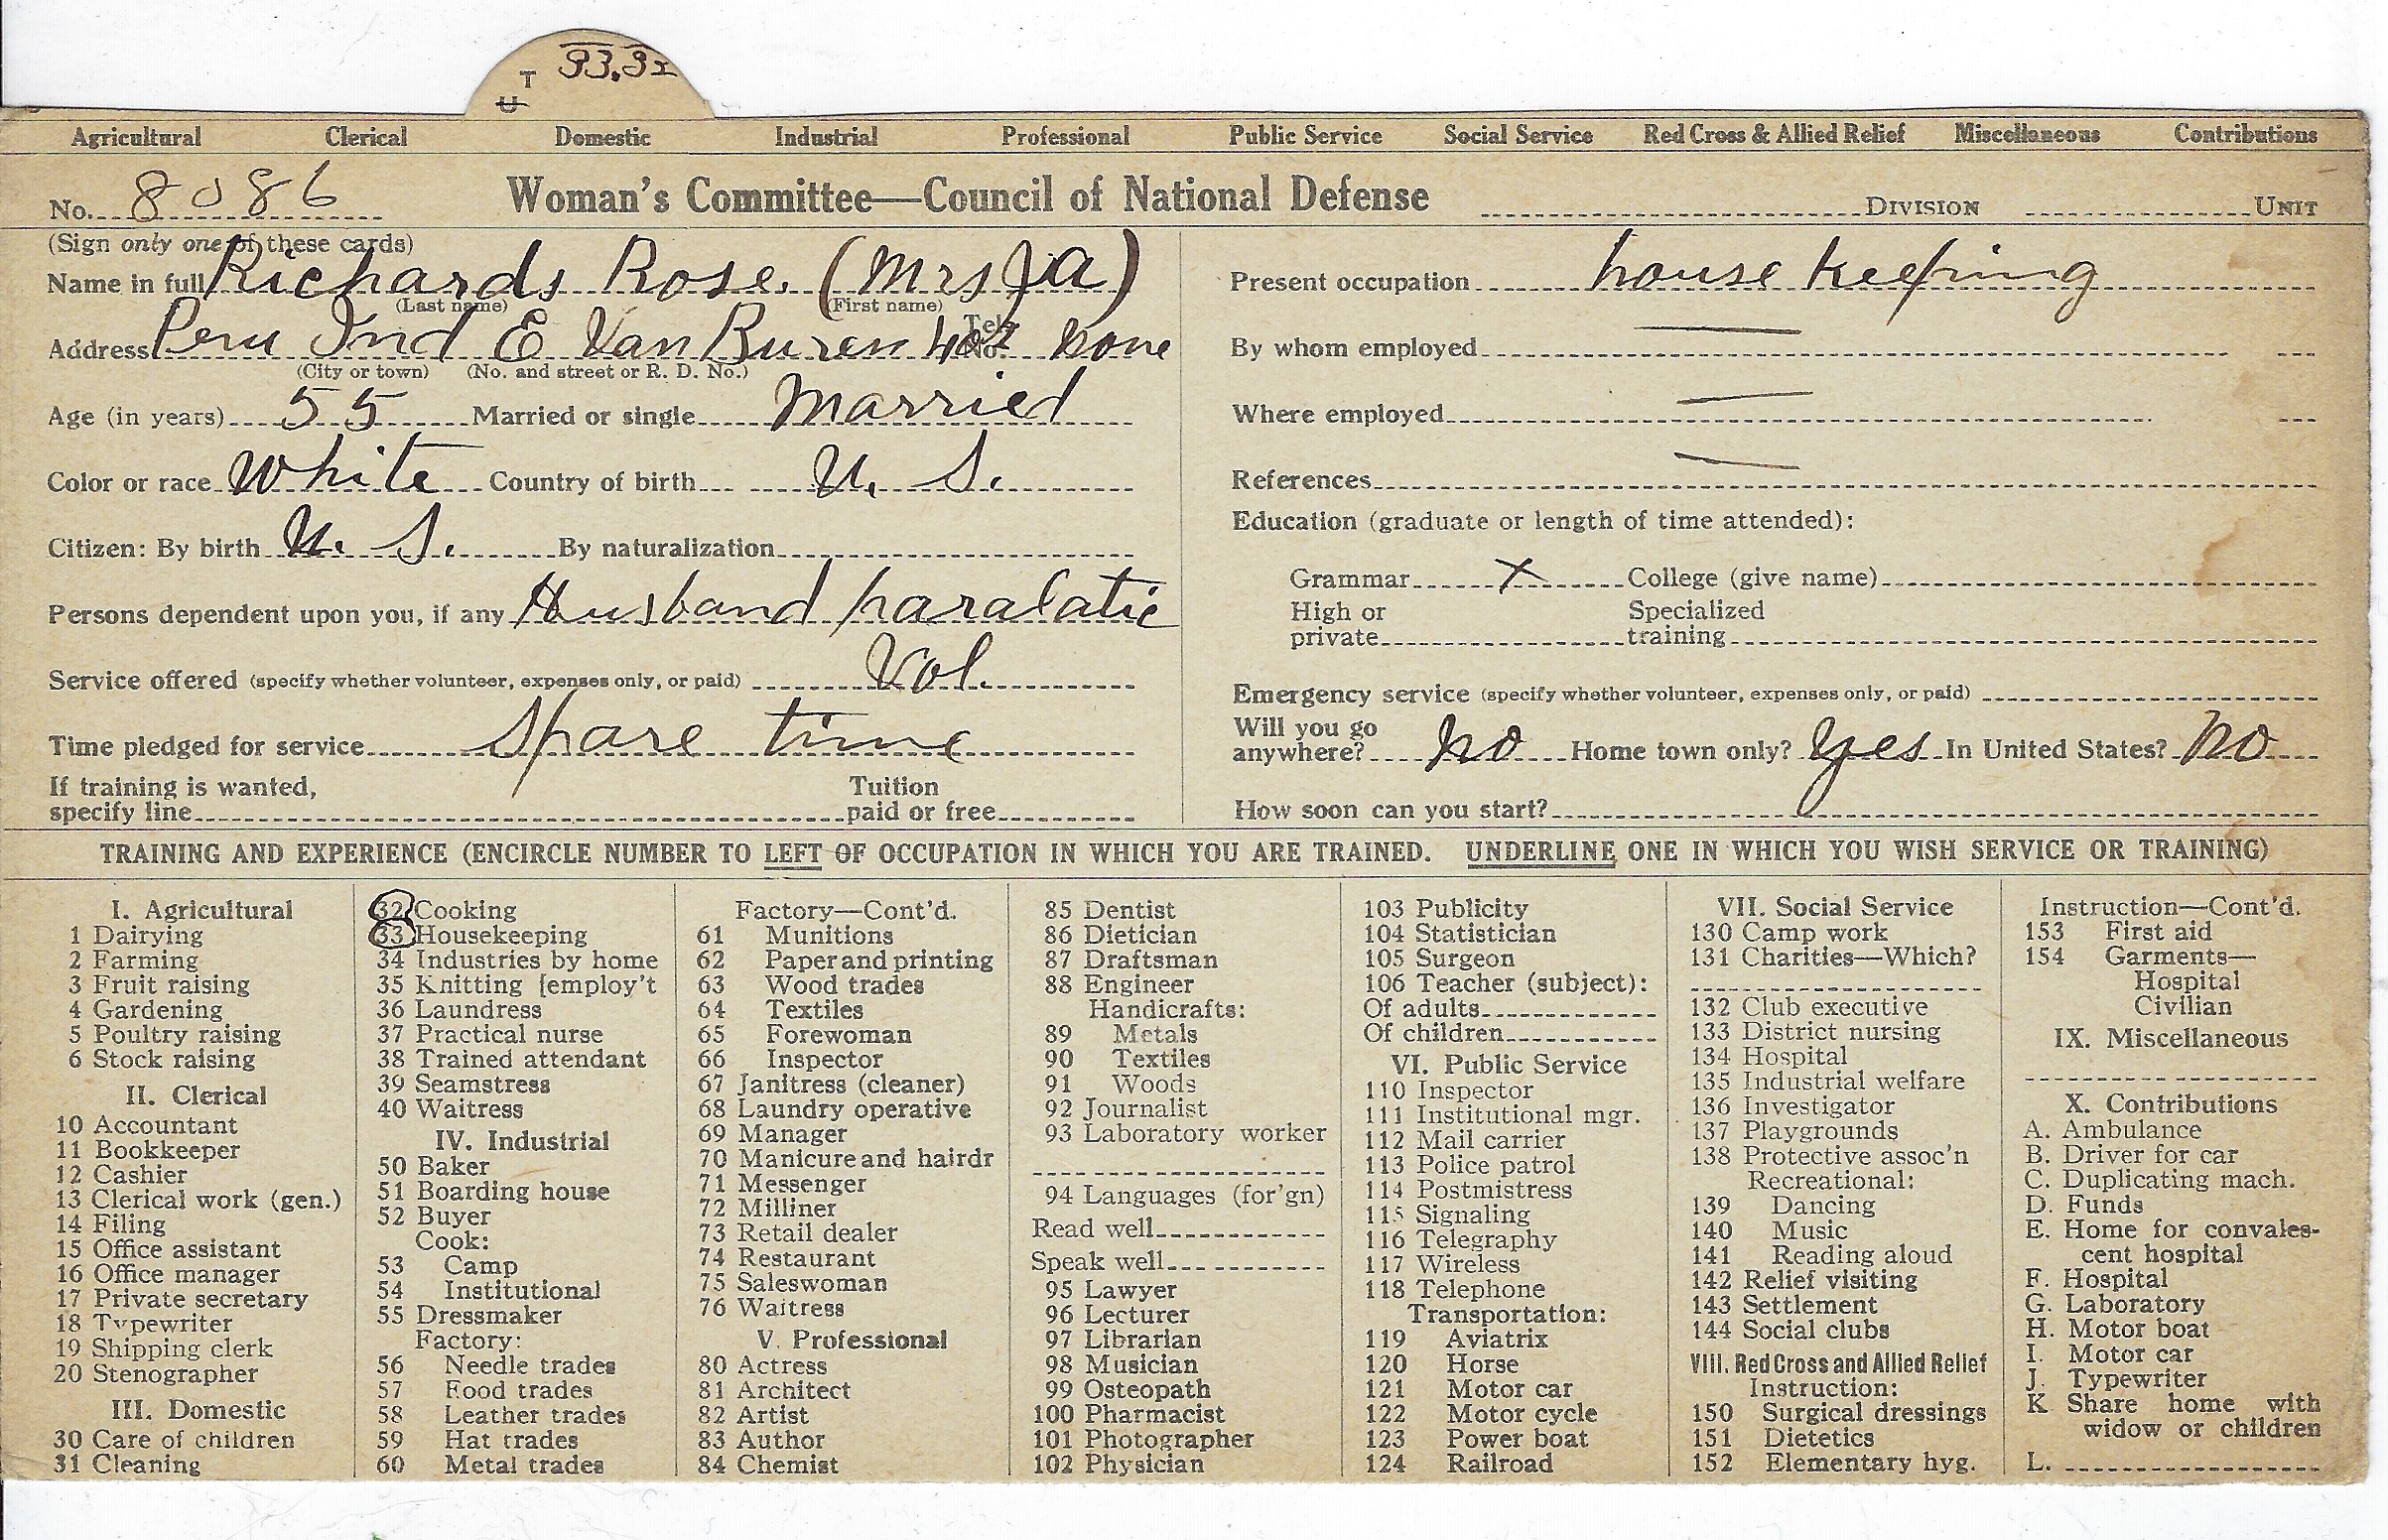 T 33.32
U
Agricultural Clerical Domestic Industrial Professional Public Service Social Service Red Cross & Allied Relief Miscellaneous Contributions
No. 8086 Woman's Committee—Council of National Defense DIVISION UNIT
(Sign only one of these cards)
Name in full Richards Rose. (Mrs J A)
(Last name) (First name)
Address Peru Ind E Van Buren Tel. No. none
(City or town) (No. and street or R. D. No.)
Age (in years) 55 Married or single Married
Color or race White Country of birth U. S.
Citizen: By birth U. S. By naturalization
Persons dependent upon you, if any Husband paralatic
Service offered (specify whether volunteer, expenses only, or paid) Vol.
Time pledged for service Spare time
If training is wanted, specify line Tuition paid or free
Present occupation house keeping
By whom employed —
Where employed —
References —
Education (graduate or length of time attended):
Grammar x College (give name)
High or private Specialized training
Emergency service (specify whether volunteer, expenses only, or paid)
Will you go anywhere? no Home town only? yes In United States? no
How soon can you start?
TRAINING AND EXPERIENCE (ENCIRCLE NUMBER TO LEFT OF OCCUPATION IN WHICH YOU ARE TRAINED. UNDERLINE ONE IN WHICH YOU WISH SERVICE OR TRAINING)
I. Agricultural
1 Dairying
2 Farming
3 Fruit raising
4 Gardening
5 Poultry raising
6 Stock raising
II. Clerical
10 Accountant
11 Bookkeeper
12 Cashier
13 Clerical work (gen.)
14 Filing
15 Office assistant
16 Office manager
17 Private secretary
18 Typewriter
19 Shipping clerk
20 Stenographer
III. Domestic
30 Care of children
31 Cleaning
32 Cooking
33 Housekeeping
34 Industries by home
35 Knitting [employ't
36 Laundress
37 Practical nurse
38 Trained attendant
39 Seamstress
40 Waitress
IV. Industrial
50 Baker
51 Boarding house
52 Buyer
Cook:
53 Camp
54 Institutional
55 Dressmaker
Factory:
56 Needle trades
57 Food trades
58 Leather trades
59 Hat trades
60 Metal trades
Factory—Cont'd.
61 Munitions
62 Paper and printing
63 Wood trades
64 Textiles
65 Forewoman
66 Inspector
67 Janitress (cleaner)
68 Laundry operative
69 Manager
70 Manicure and hairdr
71 Messenger
72 Milliner
73 Retail dealer
74 Restaurant
75 Saleswoman
76 Waitress
V. Professional
80 Actress
81 Architect
82 Artist
83 Author
84 Chemist
85 Dentist
86 Dietician
87 Draftsman
88 Engineer
Handicrafts:
89 Metals
90 Textiles
91 Woods
92 Journalist
93 Laboratory worker
94 Languages (for'gn)
Read well
Speak well
95 Lawyer
96 Lecturer
97 Librarian
98 Musician
99 Osteopath
100 Pharmacist
101 Photographer
102 Physician
103 Publicity
104 Statistician
105 Surgeon
106 Teacher (subject):
Of adults
Of children
VI. Public Service
110 Inspector
111 Institutional mgr.
112 Mail carrier
113 Police patrol
114 Postmistress
115 Signaling
116 Telegraphy
117 Wireless
118 Telephone
Transportation:
119 Aviatrix
120 Horse
121 Motor car
122 Motor cycle
123 Power boat
124 Railroad
VII. Social Service
130 Camp work
131 Charities—Which?
132 Club executive
133 District nursing
134 Hospital
135 Industrial welfare
136 Investigator
137 Playgrounds
138 Protective assoc'n
Recreational:
139 Dancing
140 Music
141 Reading aloud
142 Relief visiting
143 Settlement
144 Social clubs
VIII. Red Cross and Allied Relief
Instruction:
150 Surgical dressings
151 Dietetics
152 Elementary hyg.
Instruction—Cont'd.
153 First aid
154 Garments—
Hospital
Civilian
IX. Miscellaneous
X. Contributions
A. Ambulance
B. Driver for car
C. Duplicating mach.
D. Funds
E. Home for convales-
cent hospital
F. Hospital
G. Laboratory
H. Motor boat
I. Motor car
J. Typewriter
K Share home with
widow or children
L.